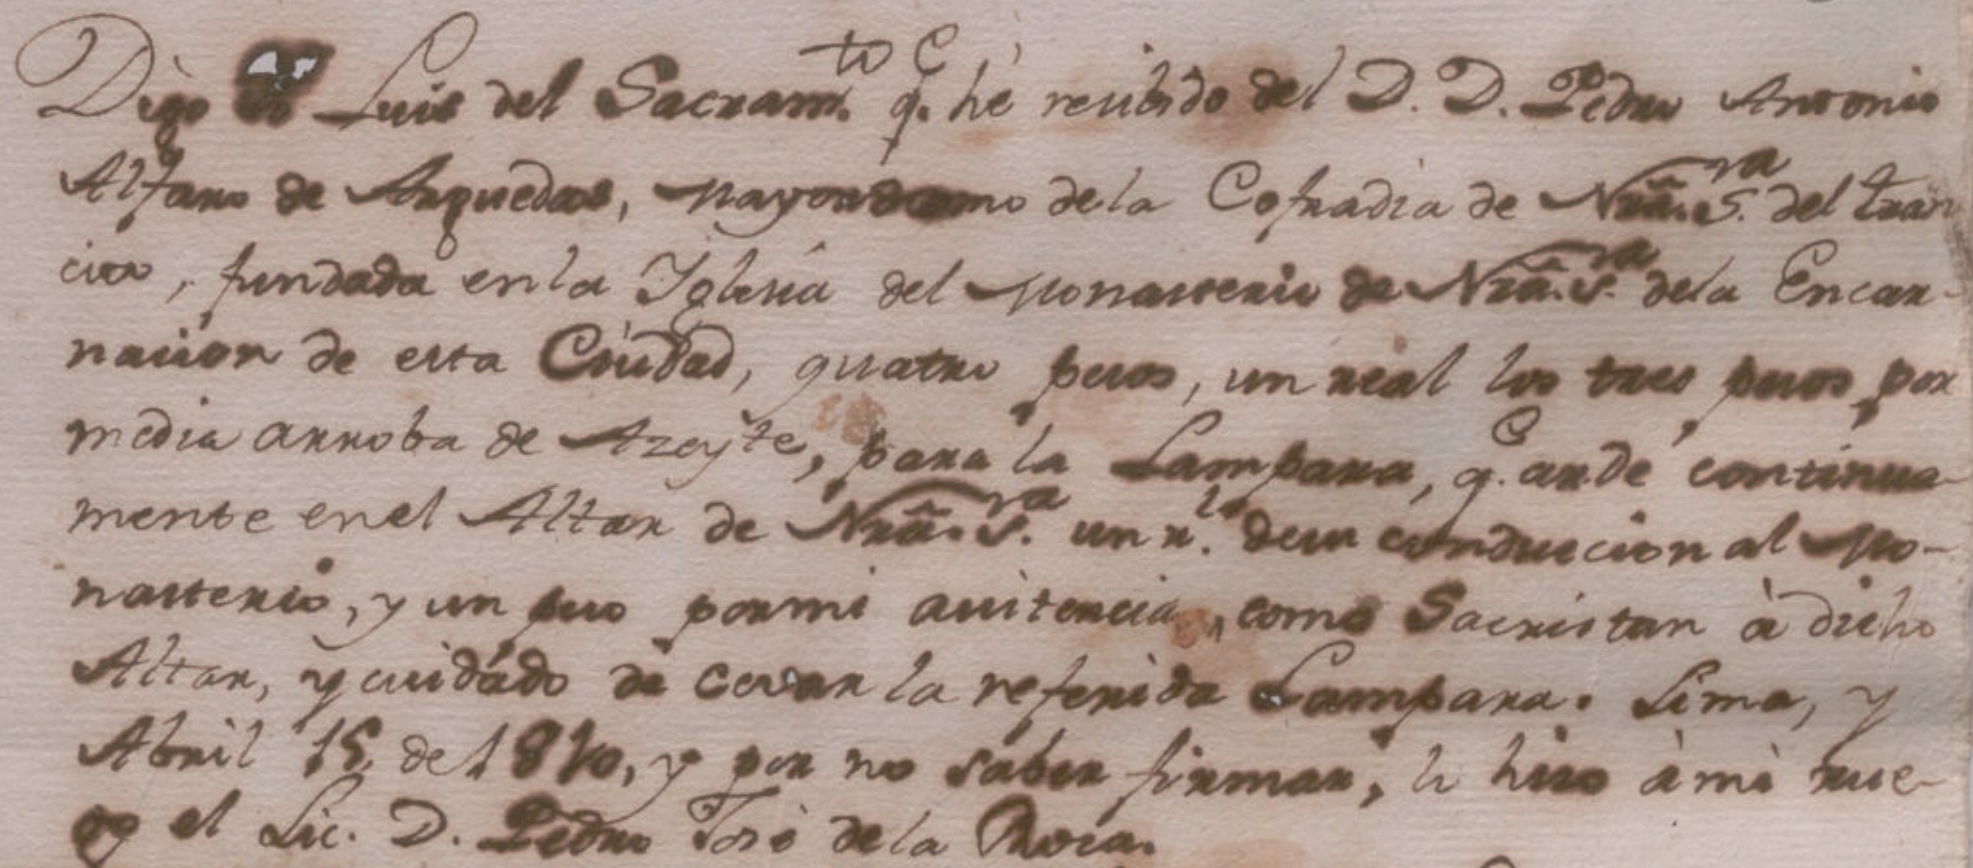 Digo yo Luis del Sacram.to q.e hé recibido del D. D. Pedro Antonio
Alfaro de Arguedas, Mayordomo dela Cofradia de Nrâ. S.ra del tran
cito, fundada en la Yglesia del Monasterio de Nrâ. S.ra dela Encar-
nacion de esta Ciudad, quatro pesos, un real los tres pesos por
media arroba de Azeyte, para la Lampara, q.e arde continua-
mente en el Altar de Nrâ. S.ra un r.l desu conduccion al Mo-
nasterio, y un peso por mi asitencia, como Sacristan à dicho
Altar, y cuidádo de cevar la referida Lampara. Lima, y
Abril 15, de 1810, y por no saber firmar, lo hiso à mi rue-
go el Lic. D. Pedro José dela Rosa.